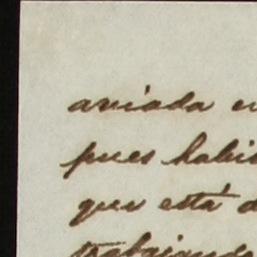 aviada e
pues habi
que está d
trabajando